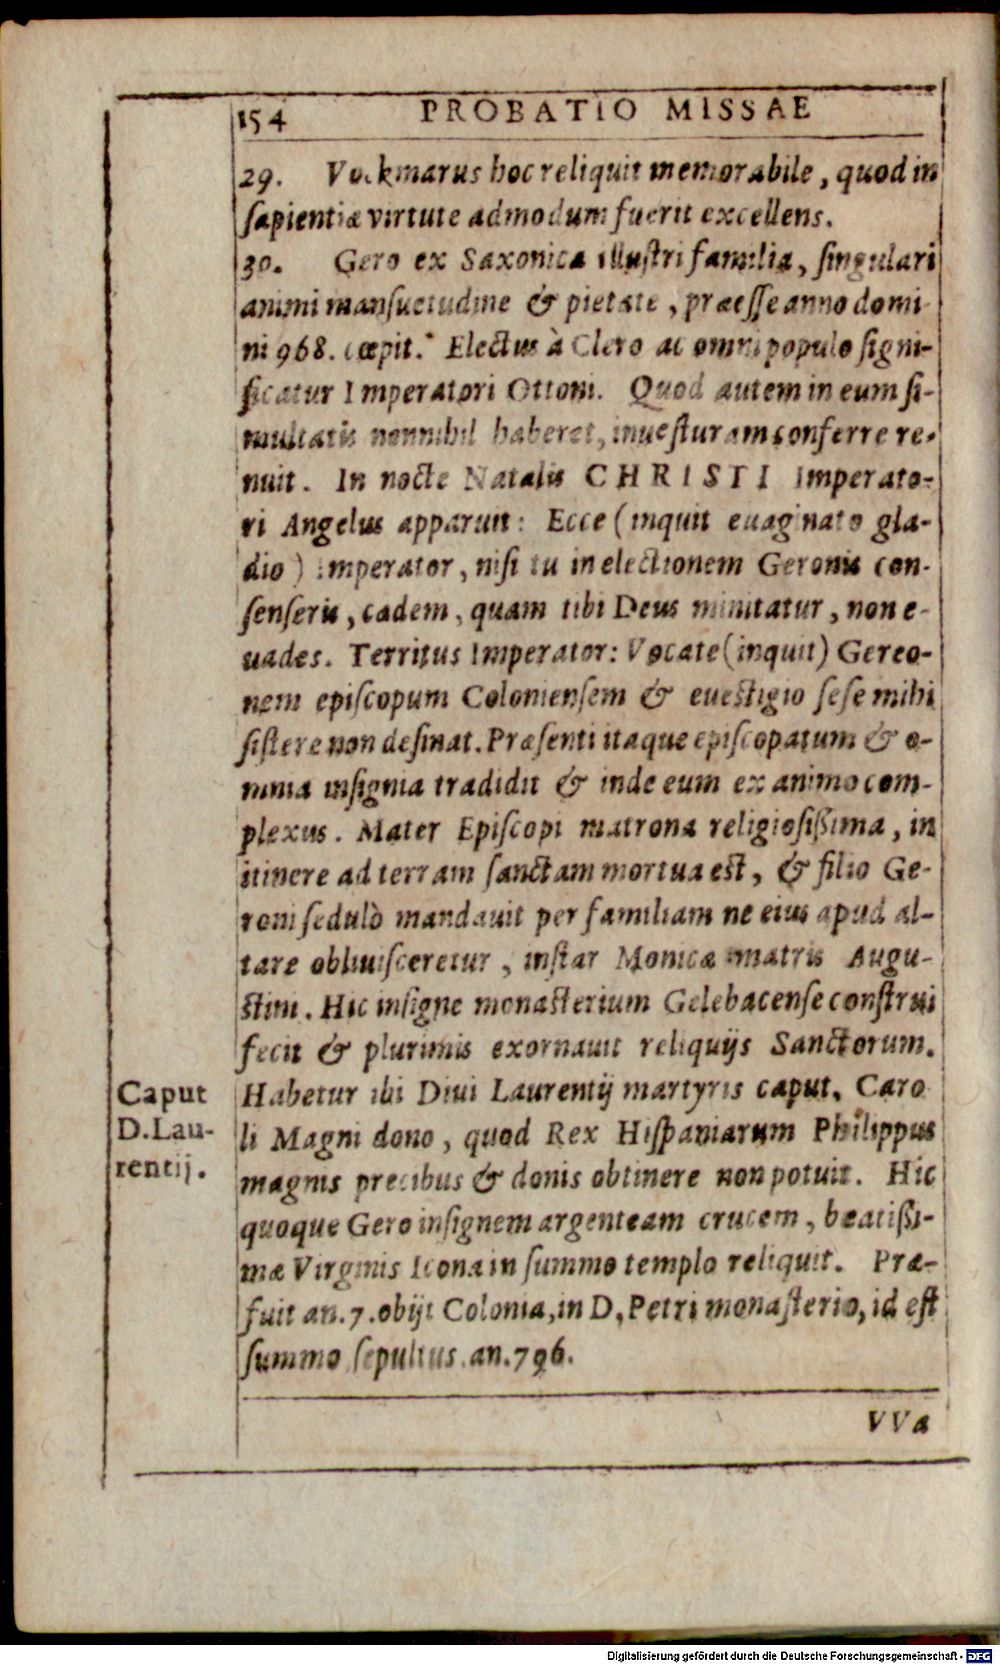 154 PROBATIO MISSAE
29. Volkmarus hoc reliquit memorabile, quod in
sapientiæ virtute admodum fuerit excellens.
30. Gero ex Saxonica illustri familia, singulari
animi mansuetudine & pietate, præesse anno domi-
ni 968. cœpit. Electus à Clero ac omni populo signi-
ficatur Imperatori Ottoni. Quod autem in eum si-
multatis nonnihil haberet, inuesturam conferre re-
nuit. In nocte Natalis CHRISTI Imperato-
ri Angelus apparuit: Ecce (inquit euaginato gla-
dio) imperator, nisi tu in electionem Geronis con-
senseris, cadem, quam tibi Deus minitatur, non e-
uades. Territus Imperator: Vocate (inquit) Gereo-
nem episcopum Coloniensem & euestigio sese mihi
sistere non desinat. Præsenti itaque episcopatum & o-
mnia insignia tradidit & inde eum ex animo com-
plexus. Mater Episcopi matrona religiosißima, in
itinere ad terram sanctam mortua est, & filio Ge-
roni sedulò mandauit per familiam ne eius apud al-
tare obliuisceretur, instar Monicæ matris Augu-
stini. Hic insigne monasterium Gelebacense construi
fecit & plurimis exornauit reliquijs Sanctorum.
Caput
D. Lau-
rentij.
Habetur ibi Diui Laurentij martyris caput, Caro
li Magni dono, quod Rex Hispaniarum Philippus
magnis precibus & donis obtinere non potuit. Hic
quoque Gero insignem argenteam crucem, beatißi-
mæ Virginis Icona in summo templo reliquit. Præ-
fuit an. 7. obijt Colonia, in D. Petri monasterio, id est
summo sepultus. an. 796.
VVa
Digitalisierung gefördert durch die Deutsche Forschungsgemeinschaft - DFG